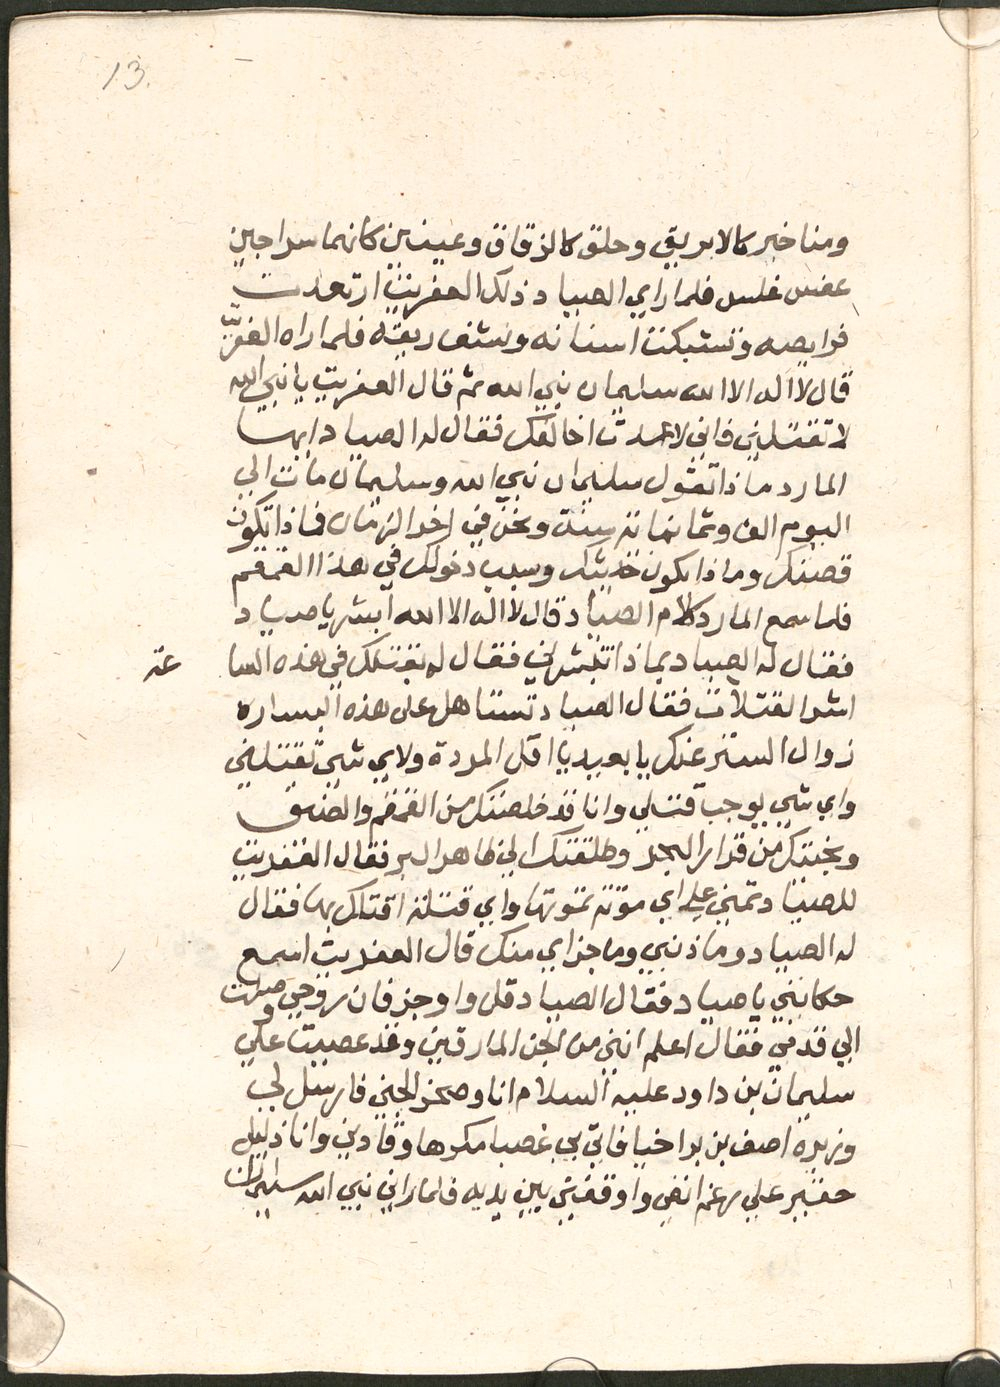 13.
ومناخير كالابريق وحلق كالزقاق وعينين كانهما سراجين
عفس غلس فلما راي الصياد ذلك العفريت ارتعدت
فرايصه وتشبكت اسنانه ونشف ريقه فلما راه العفريت
قال لا اله الا الله سليمان نبي الله ثم قال العفريت يا نبي الله
لا تقتلني فاني لا عدت اخالفك فقال له الصياد ايها
المارد ماذا تقول سليمان نبي الله وسليمان مات الي
اليوم الف وثمانماية سنة ونحن في اخر الزمان فماذا تكون
قصتك وماذا يكون حديثك وسبب دخولك في هذا القمقم
فلما سمع المارد كلام الصياد قال لا اله الا الله ابشر يا صياد
فقال له الصياد بماذا تبشرني فقال له بقتلك في هذه السا عة
اشر القتلات فقال الصياد تستاهل علي هذه البساره
زوال الستر عنك يا بعيد يا اقل المردة ولاي شي تقتلني
واي شي يوجب قتلي وانا قد خلصتك من القمقم والضيق
ونجيتك من قرار البحر وطلقتك الي ظاهر البر فقال العفريت
للصياد تمني علي اي موتة تموتها واي قتلة اقتلك بها فقال
له الصياد وما ذنبي وما جزاي منك قال العفريت اسمع
حكايتي يا صياد فقال الصياد قل واوجز فان روحي وصلت
الي قدمي فقال اعلم انني من الجن المارقين وقد عصيت علي
سليمان بن داود عليه السلام انا وصخر الجني فارسل لي
وزيره اصف بن براخيا فاتي بي غصبا مكرها وقادني وانا ذليل
حقير علي رغم انفي واوقفني بين يديه فلما راني نبي الله سليمان